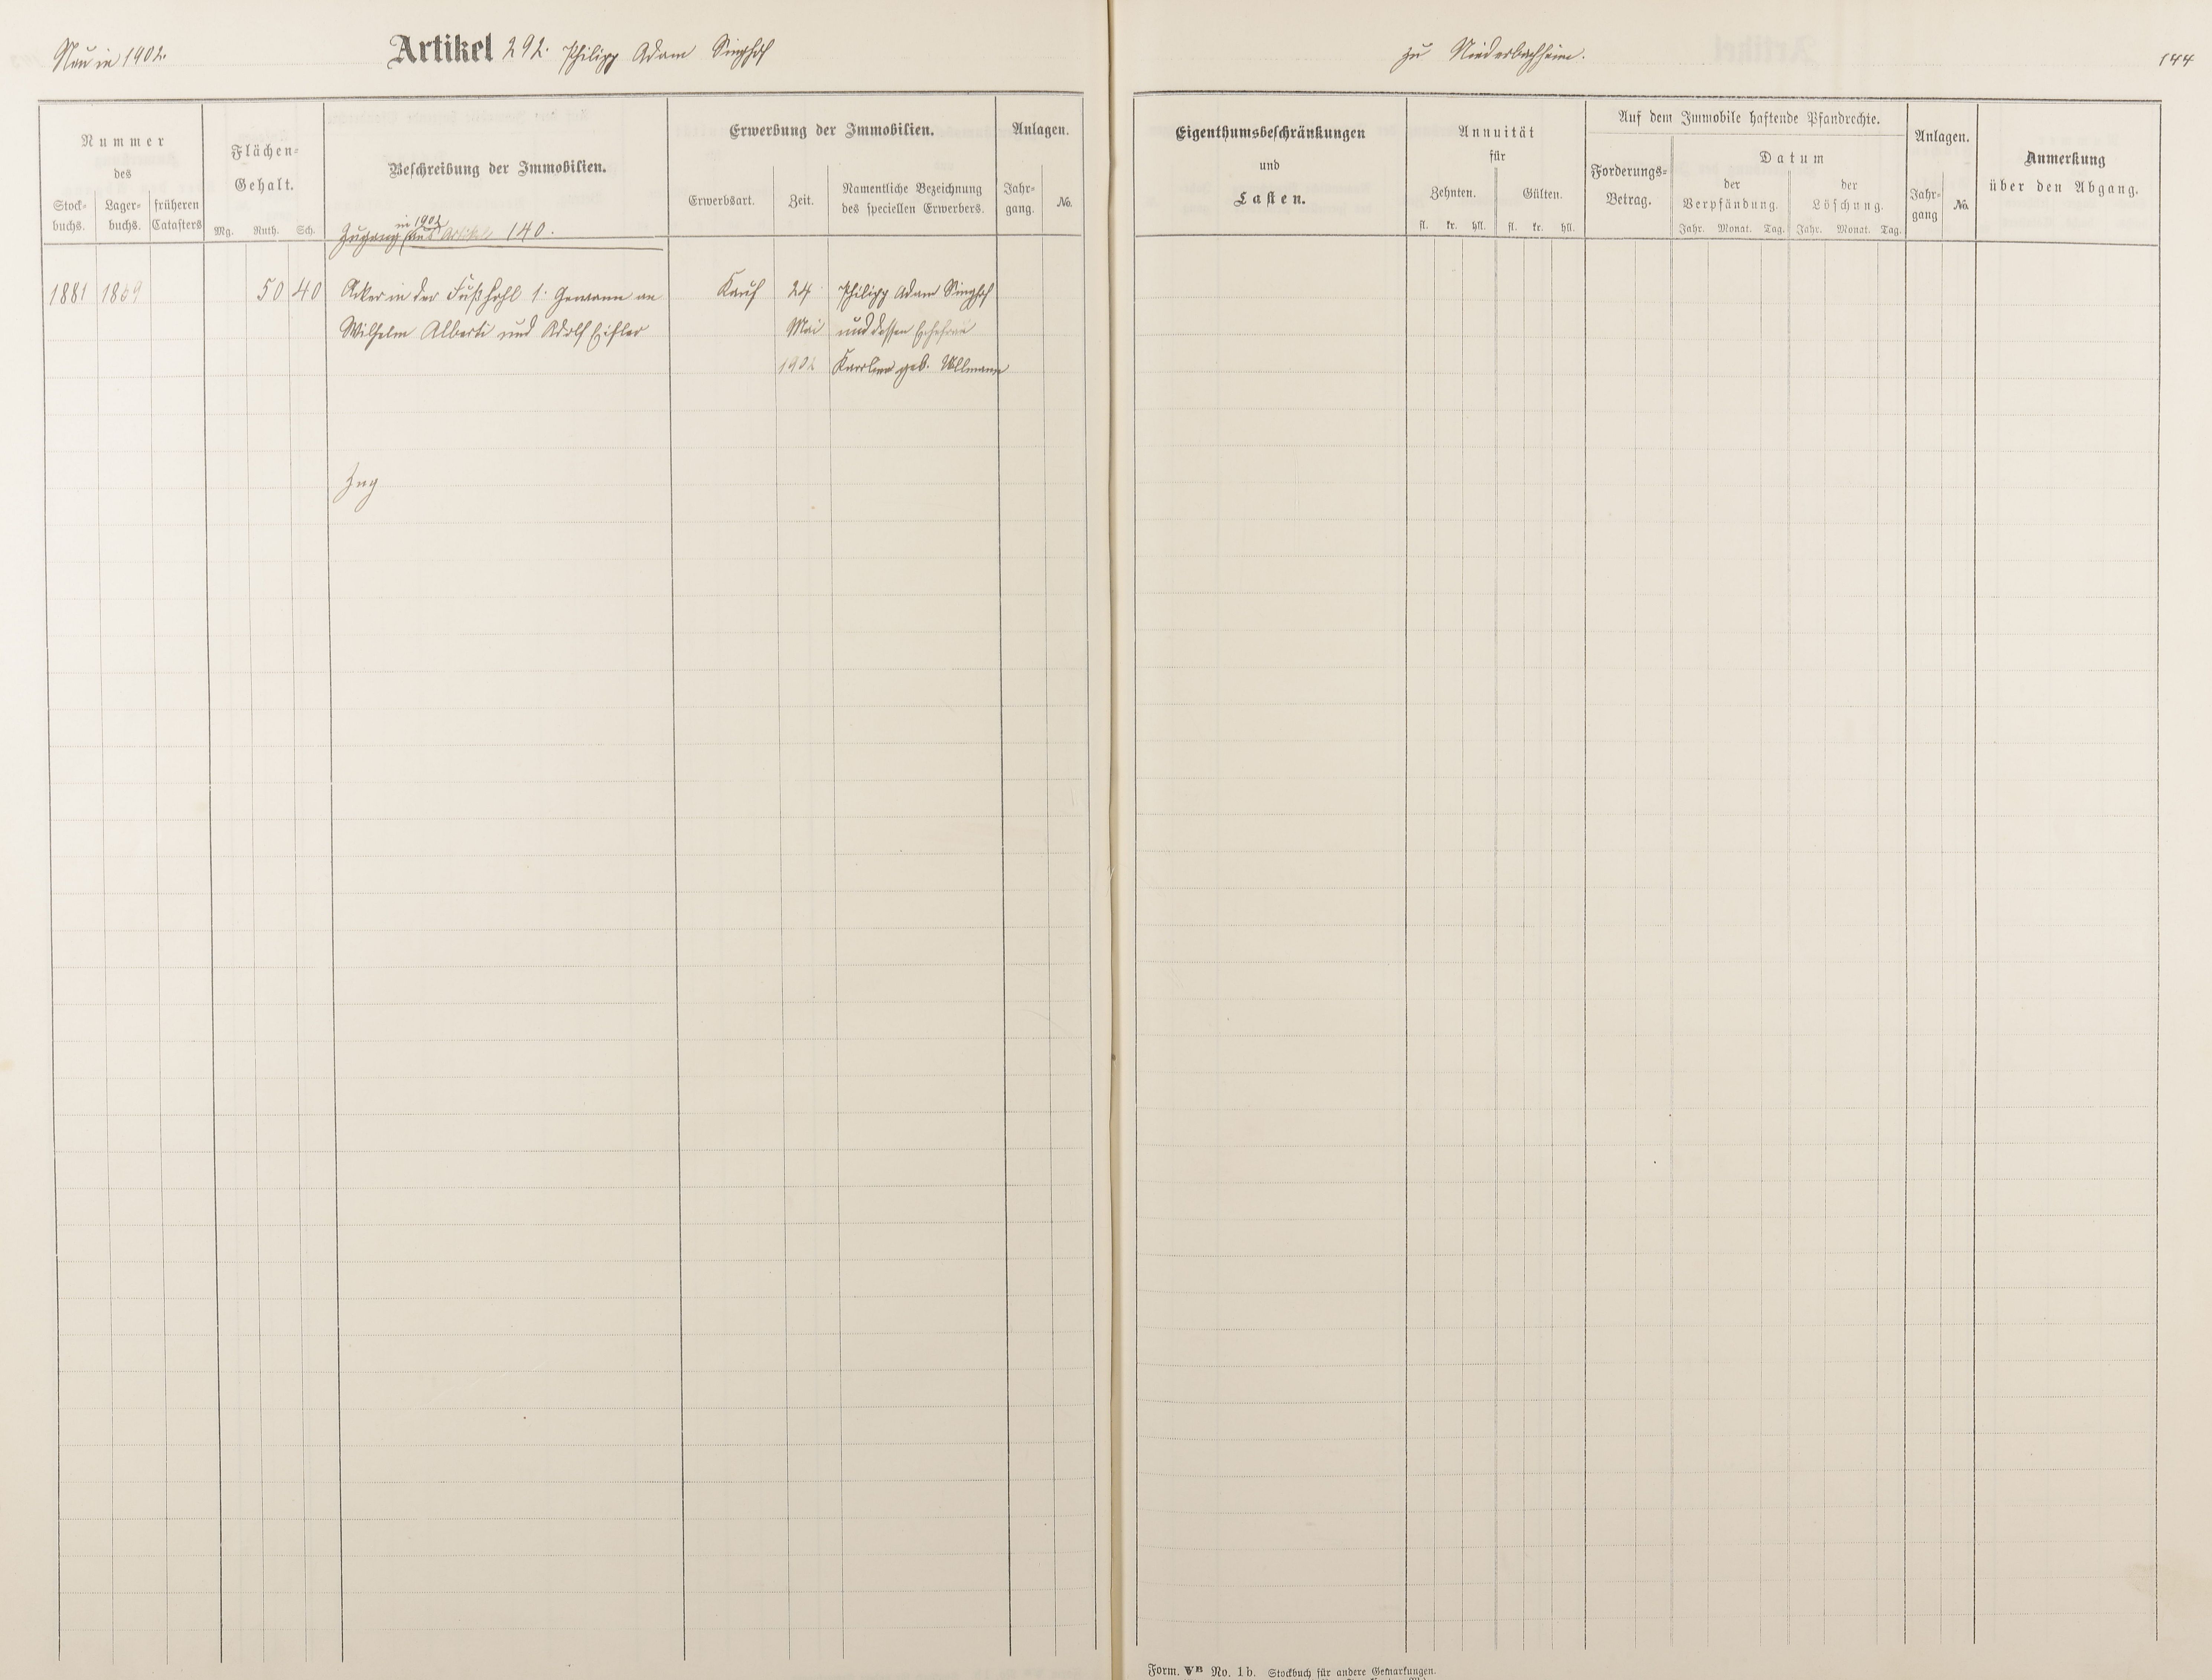 Neu in 1902.
Artikel 292. Philipp Adam Singhof
zu Niederbachheim.
144
Nummer
des
Stock-
buchs.
Lager-
buchs.
früheren
Catasters
Flächen-
Gehalt.
Mg. Ruth. Sch.
Beschreibung der Immobilien.
in 1902
Zugang aus Artikel 140.
Erwerbung der Immobilien.
Erwerbsart.
Zeit.
Namentliche Bezeichnung
des speciellen Erwerbers.
Anlagen.
Jahr-
gang.
No.
Eigenthumsbeschränkungen
und
Lasten.
Annuität
für
Zehnten.
Gülten.
fl. kr. hll. fl. kr. hll.
Auf dem Immobile haftende Pfandrechte.
Forderungs-
Betrag.
Datum
der
Verpfändung.
der
Löschung.
Jahr. Monat. Tag. Jahr. Monat. Tag.
Anlagen.
Jahr-
gang
No.
Anmerkung
über den Abgang.
1881 1869 50 40 Acker in der 1. Gewann an Kauf 24 Philipp Adam Singhof
Wilhelm Alberti und Adolf Mai und dessen Ehefrau
1902 Karoline geb. Ullmann
Zug
Form. Vn No. 1b. Stockbuch für andere Gemarkungen.